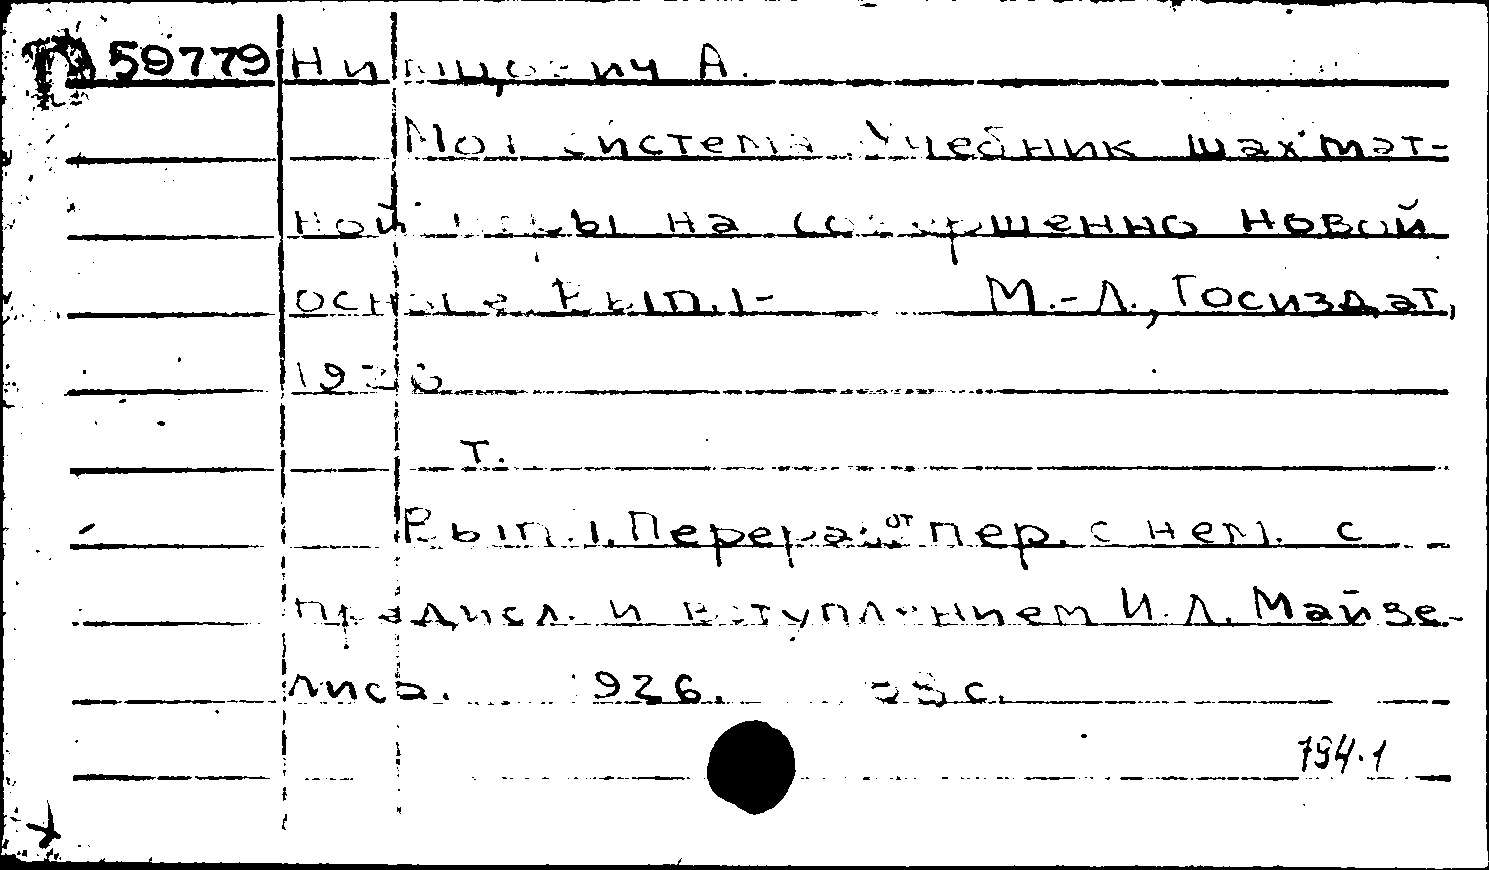 П59779 Нимцович А.
Моя система. Учебник шахмат-
ной игры на совершенно новой
основе. Вып. 1- М.-Л., Госиздат,
т.
Вып. 1. Перераб. от пер. с нем. с
предисл. и вступлением И. Л. Майзе-
лиса. 1926. с.
794.1